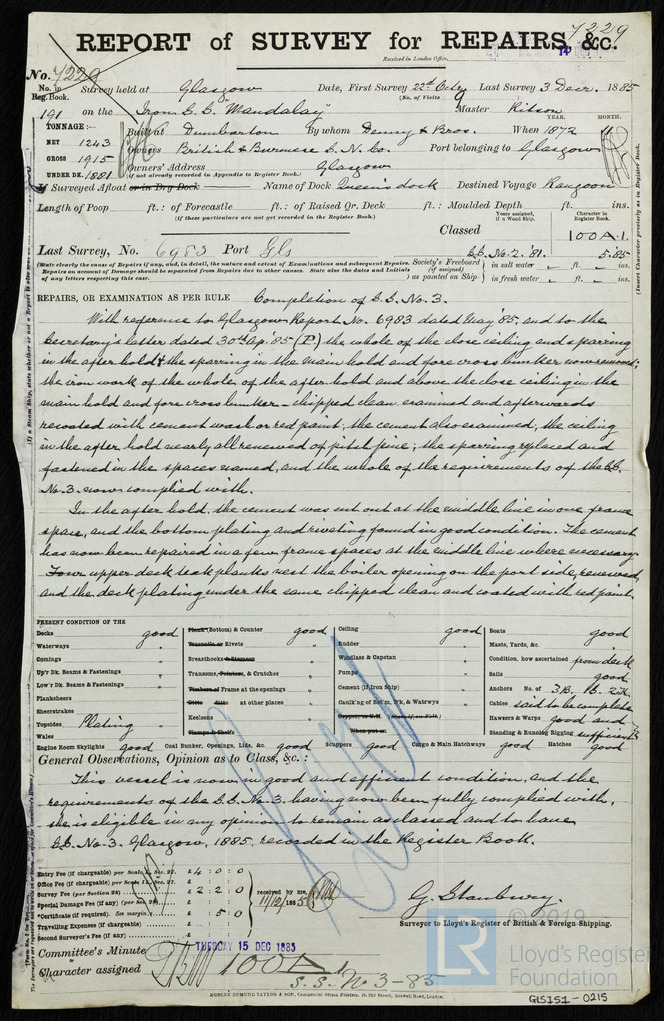 7229
REPORT of SURVEY for REPAIRS, &c.
Received in London Office,
No. 7229
No. in Reg. Book. Survey held at Glasgow Date, First Survey 22nd Octr Last Survey 3 Decr. 1885
(No. of Visits 9
191 on the Iron S.S. "Mandalay" Master Ritson
TONNAGE:—
NET 1243
GROSS 1915
UNDER DK. 1881
YEAR. MONTH.
Built at Dumbarton By whom Denny & Bros. When 1872 11
Owners British & Burmese S. N. Co. Port belonging to Glasgow
Owners' Address Glasgow
(if not already recorded in Appendix to Register Book.)
If Surveyed Afloat or in Dry Dock Name of Dock Queen's dock Destined Voyage Rangoon
Length of Poop ft.: of Forecastle ft.: of Raised Qr. Deck ft.: Moulded Depth ft. ins.
(if these particulars are not yet recorded in the Register Book.)
Years assigned, if a Wood Ship. Character in Register Book.
Classed 100A.1.
Last Survey, No. 6983 Port Gls S.S. No. 2. '81. 5.85
(State clearly the cause of Repairs if any, and, in detail, the nature and extent of Examinations and subsequent Repairs.
Repairs on account of Damage should be separated from Repairs due to other causes. State also the dates and Initials
of any letters respecting this case.
Society's Freeboard (if assigned) as painted on Ship: in salt water ft. ins.
in fresh water ft. ins.
(Insert Character precisely as in Register Book.)
REPAIRS, OR EXAMINATION AS PER RULE Completion of S.S. No. 3.
With reference to Glasgow Report No. 6983 dated May '85, and to the
Secretary's letter dated 30th Ap. '85 (P.) the whole of the close ceiling and sparring
in the after hold & the sparring in the main hold and fore cross bunker now removed;
the iron work of the whole of the after hold and above the close ceiling in the
main hold and fore cross bunker - chipped clean examined and afterwards
recoated with cement wash or red paint; the cement also examined, the ceiling
in the after hold nearly all renewed of pitch pine; the sparring replaced and
fastened in the spaces named, and the whole of the requirements of the S.S.
No. 3. now complied with.
In the after hold, the cement was cut out at the middle line in one frame
space, and the bottom plating and riveting found in good condition. The cement
has now been repaired in a few frame spaces at the middle line where necessary.
Four upper deck teak planks next the boiler opening on the port side, renewed,
and the deck plating under the same chipped clean and coated with red paint.
PRESENT CONDITION OF THE
Decks good
Waterways "
Comings "
Up'r Dk. Beams & Fastenings "
Low'r Dk. Beams & Fastenings "
Planksheers
Sheerstrakes
Topsides Plating "
Wales
Engine Room Skylights good
Plank (Bottom) & Counter good
Treenails or Rivets "
Breasthooks & Stemson "
Transoms, Pointers, & Crutches "
Timbers of Frame at the openings "
Ditto Ditto at other places "
Keelsons "
Clamps & Shelfs
Coal Bunker, Openings, Lids, &c. good
Ceiling good
Rudder "
Windlass & Capstan "
Pumps "
Cement (if Iron Ship) "
Caulk'ng of Bot'm, D'k, & Watrwys "
When put on
Scuppers good
Cargo & Main Hatchways good
Boats good
Masts, Yards, &c. "
Condition, how ascertained from deck
Sails good
Anchors No. of 3B. 1S. 2K.
Cables said to be complete
Hawsers & Warps good and
Standing & Running Rigging sufficient
Hatches good
General Observations, Opinion as to Class, &c.:
This vessel is now in good and efficient condition, and the
requirements of the S.S. No. 3. having now been fully complied with,
she is eligible in my opinion to remain as classed and to have
S.S. No. 3. Glasgow, 1885, recorded in the Register Book.
Entry Fee (if chargeable) per Scale £ 4 : 0 : 0
Office Fee (if chargeable) per Scale £ : :
Survey Fee (per Section 28) £ 2 : 2 : 0
Special Damage Fee (if any) (per Sec. £ : :
Certificate (if required). See margin. £ : 5 : 0
Travelling Expenses (if chargeable) £ : :
Second Surveyor's Fee (if any) £ : :
received by me,
11/12/1885
G. Stanbury.
Surveyor to Lloyd's Register of British & Foreign Shipping.
Committee's Minute TUESDAY 15 DEC 1885
Character assigned 100A1
S.S. No 3-85
ROBERT EDMUND TAYLOR & SON, Commercial Steam Printers, London.
© 2019
LR Lloyd's Register
Foundation
GLS151-0215